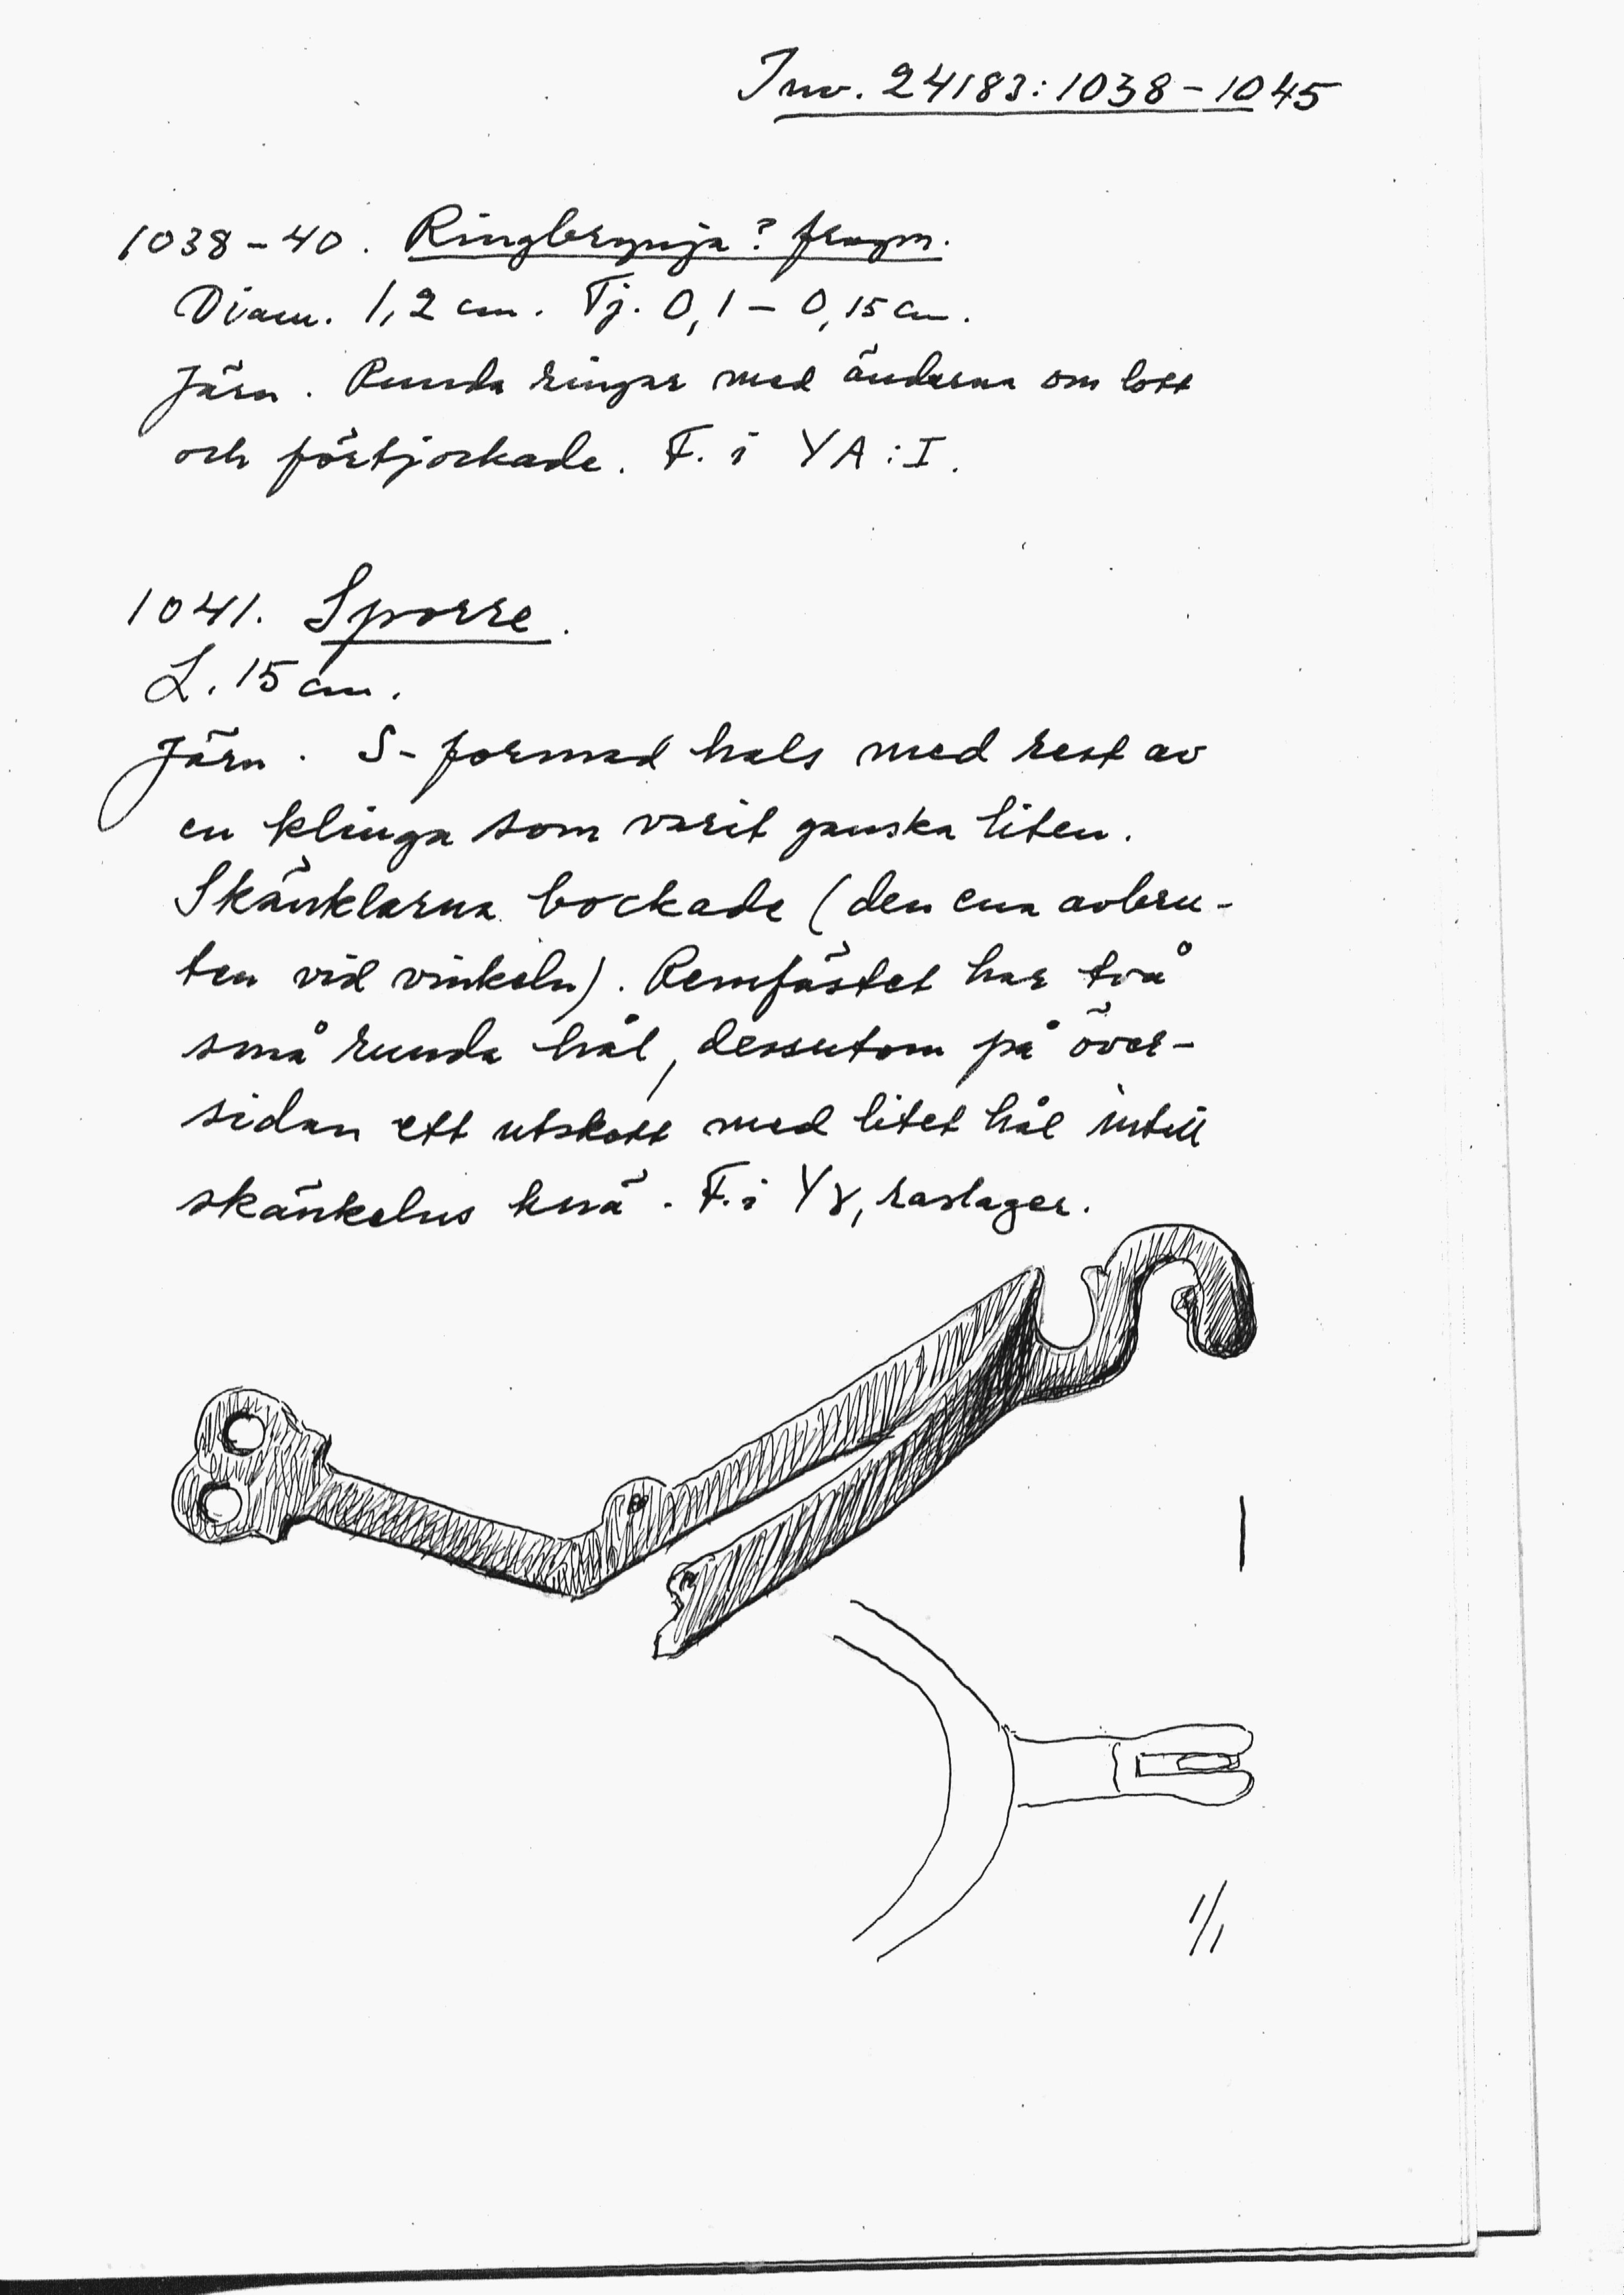 Inv. 24183:1038-1045
1038-40. Ringbrynja? fragm.
Diam. 1,2 cm. Tj. 0,1 - 0,15 cm.
Järn. Runda ringar med ändarna om lott
och förtjockade. F. i YA:I.
1041. Sporre.
L. 15 cm.
Järn. S-formad hals med rest av
en klinga som varit ganska liten.
Skänklarna bockade (den ena avbru-
ten vid vinkeln). Remfästet har två
små runda hål, dessutom på över-
sidan ett utskott med litet hål intill
skänkelns knä. F. i Yγ, raslager.
1/1